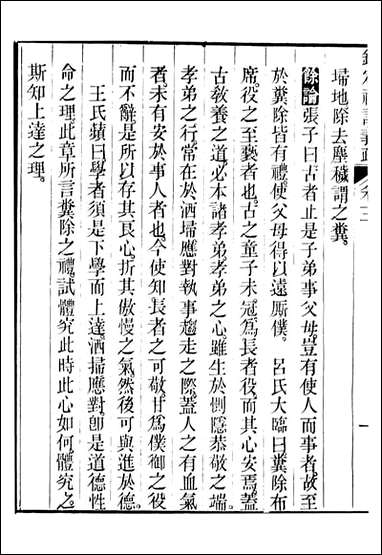 欽定禮記義疏 卷二 一
埽地除去塵穢謂之糞
餘論張子曰古者止是子弟事父母豈有使人而事者故至
於糞除皆有禮使父母得以遠厮僕 呂氏大臨曰糞除布
席役之至褻者也古之童子未冠爲長者役而其心安焉
古敎養之道必本諸孝弟孝弟之心雖生於惻隱恭敬之端
孝弟之行常在於洒埽應對執事趨走之際蓋人之有血氣
者未有安於事人者也今使知長者之可敬甘爲僕御之役
而不辭是所以存其良心折其傲慢之氣然後可與進於德
王氏蘋曰學者須是下學而上達洒掃應對卽是道德性
命之理此章所言糞除之禮試體究此時此心如何體究之
斯知上達之理